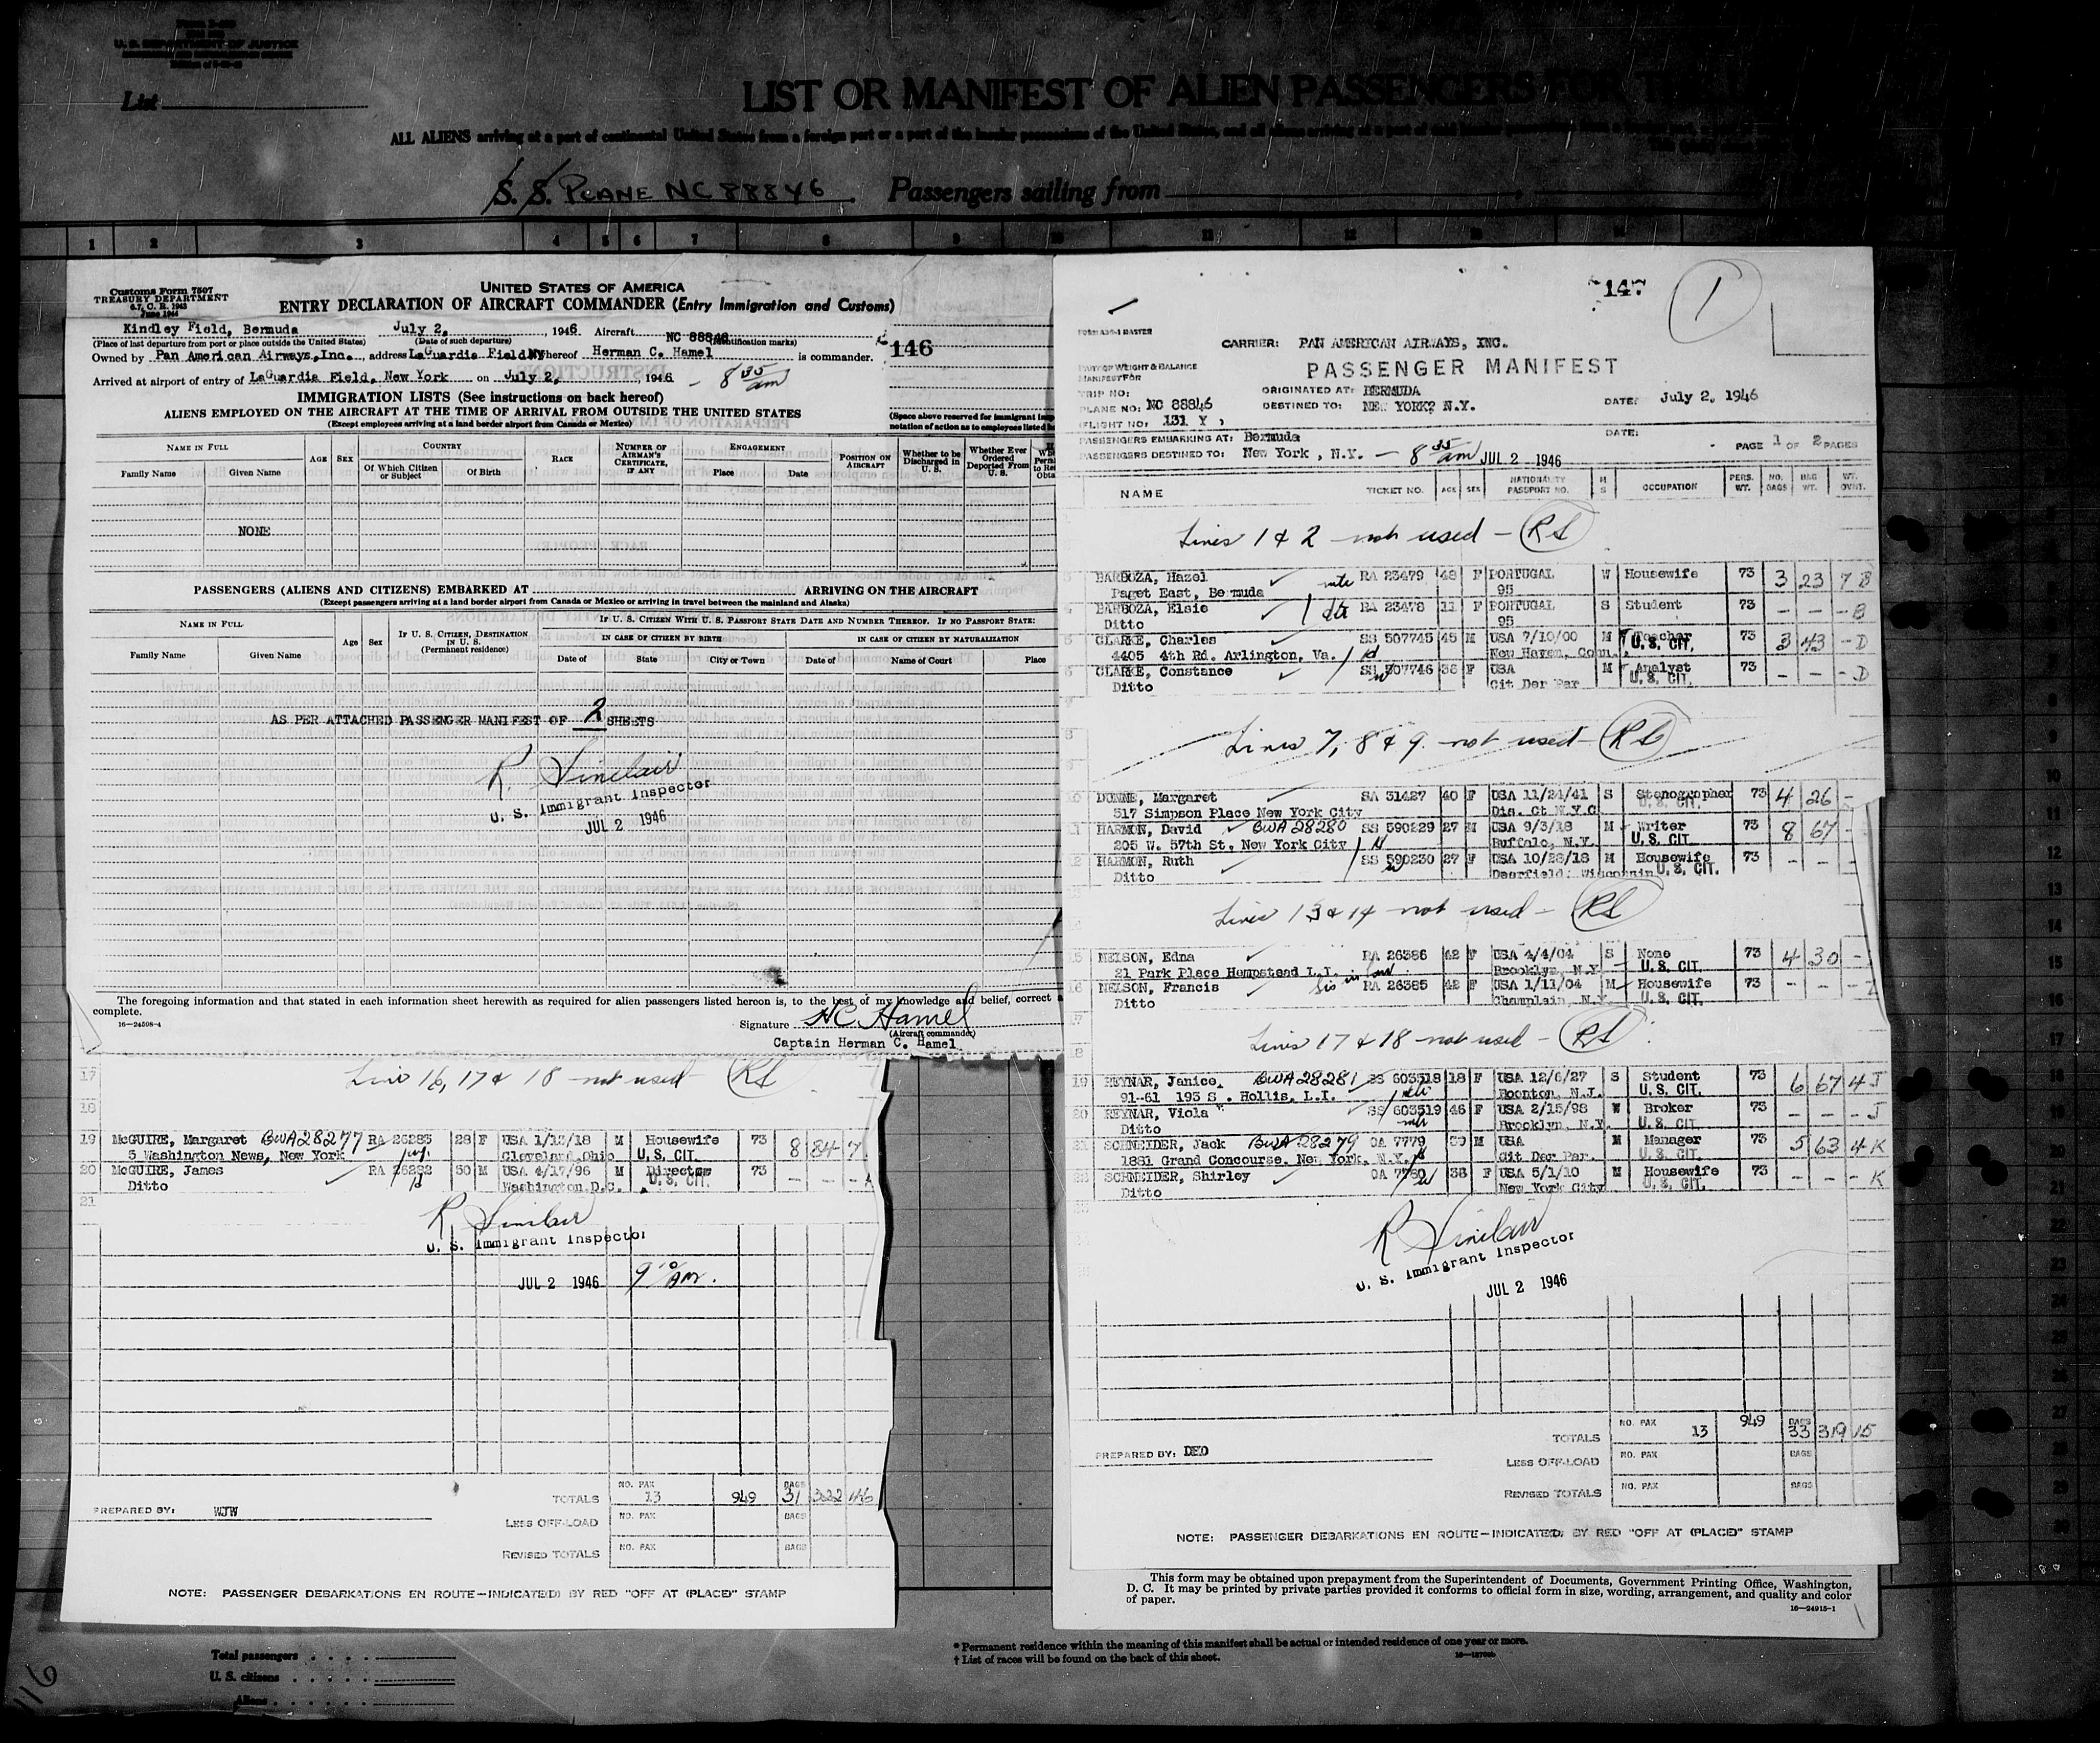 U. S. DEPARTMENT OF JUSTICE
List
LIST OR MANIFEST OF ALIEN PASSENGERS FOR
ALL ALIENS arriving at a port of continental United States from a foreign port or a port of the insular possessions of the United States, and all aliens arriving at a port of
S. S. PLANE NC 88846. Passengers sailing from
1 2 3 4 5 6 7 8 9 10 11 12 13 14
Customs Form 7507
TREASURY DEPARTMENT
June 1944
UNITED STATES OF AMERICA
ENTRY DECLARATION OF AIRCRAFT COMMANDER (Entry Immigration and Customs)
Kindley Field, Bermuda July 2, , 1946 Aircraft NC 88846
(Place of last departure from port or place outside the United States) (Date of such departure) (Identification marks)
Owned by Pan American Airways, Inc. , address LaGuardia Field NY whereof Herman C. Hamel is commander.
Arrived at airport of entry of LaGuardia Field, New York on July 2, , 1946 - 8 35 am
146
IMMIGRATION LISTS (See instructions on back hereof)
ALIENS EMPLOYED ON THE AIRCRAFT AT THE TIME OF ARRIVAL FROM OUTSIDE THE UNITED STATES
(Except employees arriving at a land border airport from Canada or Mexico)
(Space above reserved for immigrant
notation of action as to employees listed
NAME IN FULL AGE SEX COUNTRY RACE NUMBER OF AIRMAN'S CERTIFICATE, IF ANY ENGAGEMENT POSITION ON AIRCRAFT Whether to be Discharged in U. S. Whether Ever Ordered Deported From U. S.
Family Name Given Name Of Which Citizen or Subject Of Birth Place Date
NONE
PASSENGERS (ALIENS AND CITIZENS) EMBARKED AT ARRIVING ON THE AIRCRAFT
(Except passengers arriving at a land border airport from Canada or Mexico or arriving in travel between the mainland and Alaska)
NAME IN FULL Age Sex IF U. S. CITIZEN, DESTINATION IN U. S. (Permanent residence) IF U. S. CITIZEN WITH U. S. PASSPORT STATE DATE AND NUMBER THEREOF. IF NO PASSPORT STATE:
IN CASE OF CITIZEN BY BIRTH IN CASE OF CITIZEN BY NATURALIZATION
Family Name Given Name Date of State City or Town Date of Name of Court Place
AS PER ATTACHED PASSENGER MANIFEST OF 2 SHEETS
R. Sinclair
U. S. Immigrant Inspector
JUL 2 1946
The foregoing information and that stated in each information sheet herewith as required for alien passengers listed hereon is, to the best of my knowledge and belief, correct
complete.
16—24598-4
Signature HC Hamel
(Aircraft commander)
Captain Herman C. Hamel
17 Line 16, 17 & 18 not used RS
18
19 McGUIRE, Margaret BWA 28277 RA 26283 28 F USA 1/13/18 M Housewife 73 8 84 7
5 Washington News, New York Cleveland, Ohio U. S. CIT.
20 McGUIRE, James RA 26282 50 M USA 4/17/96 M Director 73 - - -
Ditto Washington D.C. U. S. CIT.
21
R Sinclair
U. S. Immigrant Inspector
JUL 2 1946 9 10 AM.
TOTALS NO. PAX 13 949 BAGS 31 322
PREPARED BY: WJW
LESS OFF-LOAD NO. PAX BAGS
REVISED TOTALS NO. PAX BAGS
NOTE: PASSENGER DEBARKATIONS EN ROUTE—INDICATE(D) BY RED "OFF AT (PLACE)" STAMP
147 1
CARRIER: PAN AMERICAN AIRWAYS, INC.
PASSENGER MANIFEST
WEIGHT & BALANCE
MANIFEST FOR
TRIP NO:
ORIGINATED AT: BERMUDA
PLANE NO: NC 88846 DESTINED TO: NEW YORK? N.Y. DATE: July 2, 1946
(FLIGHT NO, 131 Y ,
PASSENGERS EMBARKING AT: Bermuda DATE: PAGE 1 OF 2 PAGES
PASSENGERS DESTINED TO: New York , N.Y. - 8 35 am JUL 2 1946
NAME TICKET NO. AGE SEX NATIONALITY PASSPORT NO. M S OCCUPATION PERS. WT. NO. BAGS BAG WT. WT. OVWT.
Lines 1 & 2 not used - RS
3 BARBOZA, Hazel RA 23479 48 F PORTUGAL W Housewife 73 3 23 7 B
Paget East, Bermuda 95
4 BARBOZA, Elsie RA 23478 11 F PORTUGAL S Student 73 - - - B
95
5 CLARKE, Charles SS 507745 45 M USA 7/10/00 M Teacher 73 3 43 - D
4405 4th Rd. Arlington, Va. New Haven, Conn. U. S. CIT.
6 CLARKE, Constance SS 507746 38 F USA M Analyst 73 - - - D
Ditto Cit Der Par U. S. CIT.
7
8 Lines 7, 8 & 9 not used - RS
10 DUNNE, Margaret SA 51427 40 F USA 11/24/41 S Stenographer 73 4 26 -
517 Simpson Place New York City Dis. Ct N.Y.C U. S. CIT.
11 HARMON, David BWA 28280 SS 590229 27 M USA 9/3/18 M Writer 73 8 67 -
205 W. 57th St, New York City Buffalo, N.Y. U. S. CIT.
12 HARMON, Ruth SS 590230 27 F USA 10/28/18 M Housewife 73 - - -
Ditto Deerfield, Wisconsin U. S. CIT.
Lines 13 & 14 not used - RS
15 NELSON, Edna RA 26386 42 F USA 4/4/04 S None 73 4 30 -
21 Park Place Hempstead L.I. Brooklyn, N.Y U. S. CIT.
16 NELSON, Francis Sis in law RA 26385 42 F USA 1/11/04 M Housewife 73 - - -
Ditto Champlain, N.Y. U. S. CIT.
17
Lines 17 & 18 not used - RS
18
19 REYNAR, Janice BWA 28281 SS 603518 18 F USA 12/6/27 S Student 73 6 67 4 J
91-61 193 S . Hollis, L.I. Boonton, N.J. U. S. CIT.
20 REYNAR, Viola SS 603519 46 F USA 2/15/98 W Broker 73 - - - J
Ditto Brooklyn, N.Y. U. S. CIT.
21 SCHNEIDER, Jack BWA 28279 OA 7779 M USA M Manager 73 5 63 4 K
1881 Grand Concourse, New York, N.Y. Cit Der Par. U. S. CIT.
22 SCHNEIDER, Shirley OA 7780 38 F USA 5/1/10 M Housewife 73 - - - K
Ditto New York City U. S. CIT.
R Sinclair
U. S. Immigrant Inspector
JUL 2 1946
TOTALS NO. PAX 13 949 BAGS 33 319 15
PREPARED BY: DEO
LESS OFF-LOAD NO. PAX BAGS
REVISED TOTALS NO. PAX BAGS
NOTE: PASSENGER DEBARKATIONS EN ROUTE—INDICATE(D) BY RED "OFF AT (PLACE)" STAMP
This form may be obtained upon prepayment from the Superintendent of Documents, Government Printing Office, Washington,
D. C. It may be printed by private parties provided it conforms to official form in size, wording, arrangement, and quality and color
of paper.
16—24915-1
Total passengers
U. S. citizens
Aliens
* Permanent residence within the meaning of this manifest shall be actual or intended residence of one year or more.
† List of races will be found on the back of this sheet.
116